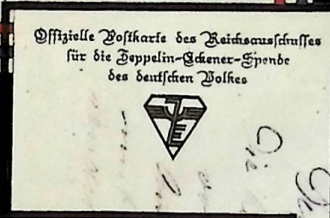 Offizielle Postkarte des Reichsausschusses
für die Zeppelin-Eckener-Spende
des deutschen Volkes